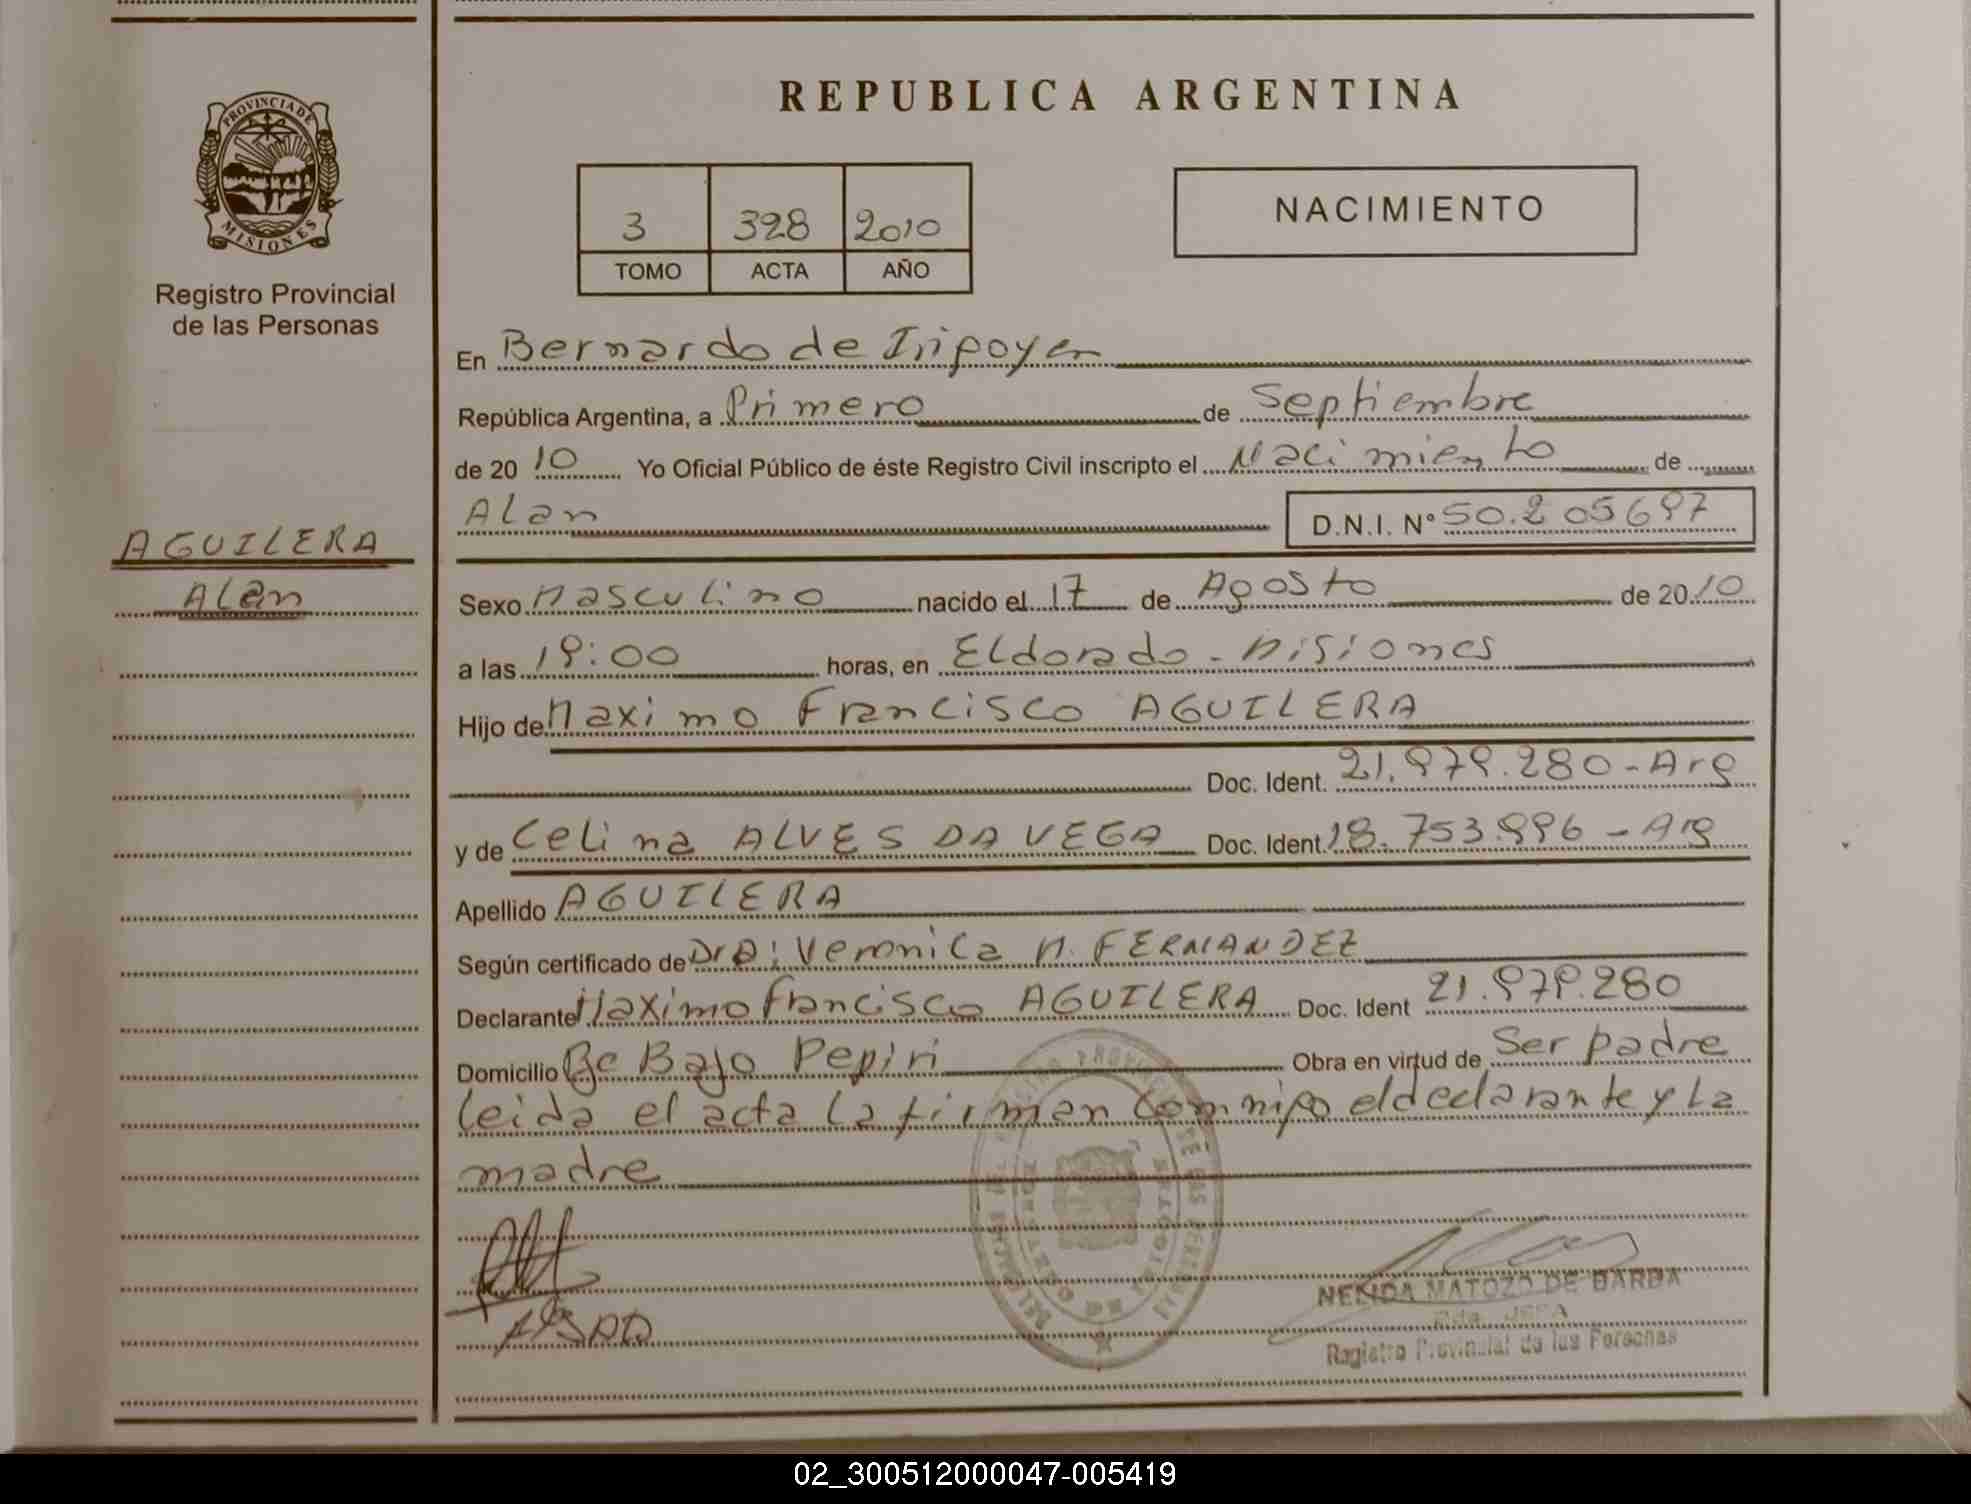 PROVINCIA DE
MISIONES
Registro Provincial
de las Personas
AGUILERA
Alan
REPUBLICA ARGENTINA
3 328 2010
TOMO ACTA AÑO
NACIMIENTO
En Bernardo de Iripoyen
República Argentina, a Primero de Septiembre
de 20 10 Yo Oficial Público de éste Registro Civil inscripto el Nacimiento de
Alan D.N.I. N° 50.205697
Sexo Masculino nacido el 17 de Agosto de 20 10
a las 19:00 horas, en Eldorado - Misiones
Hijo de Maximo Francisco AGUILERA
Doc. Ident. 21.979.280 - Arg
y de Celina ALVES DA VEGA Doc. Ident. 18.753.996 - Arg
Apellido AGUILERA
Según certificado de Dra: Veronica M. FERNANDEZ
Declarante Maximo Francisco AGUILERA Doc. Ident 21.979.280
Domicilio Bc Bajo Pepiri Obra en virtud de Ser padre
leida el acta la firman conmigo el declarante y la
madre
NELIDA MATOZO DE BARBA
JEFA
Registro Provincial de las Personas
02_300512000047-005419